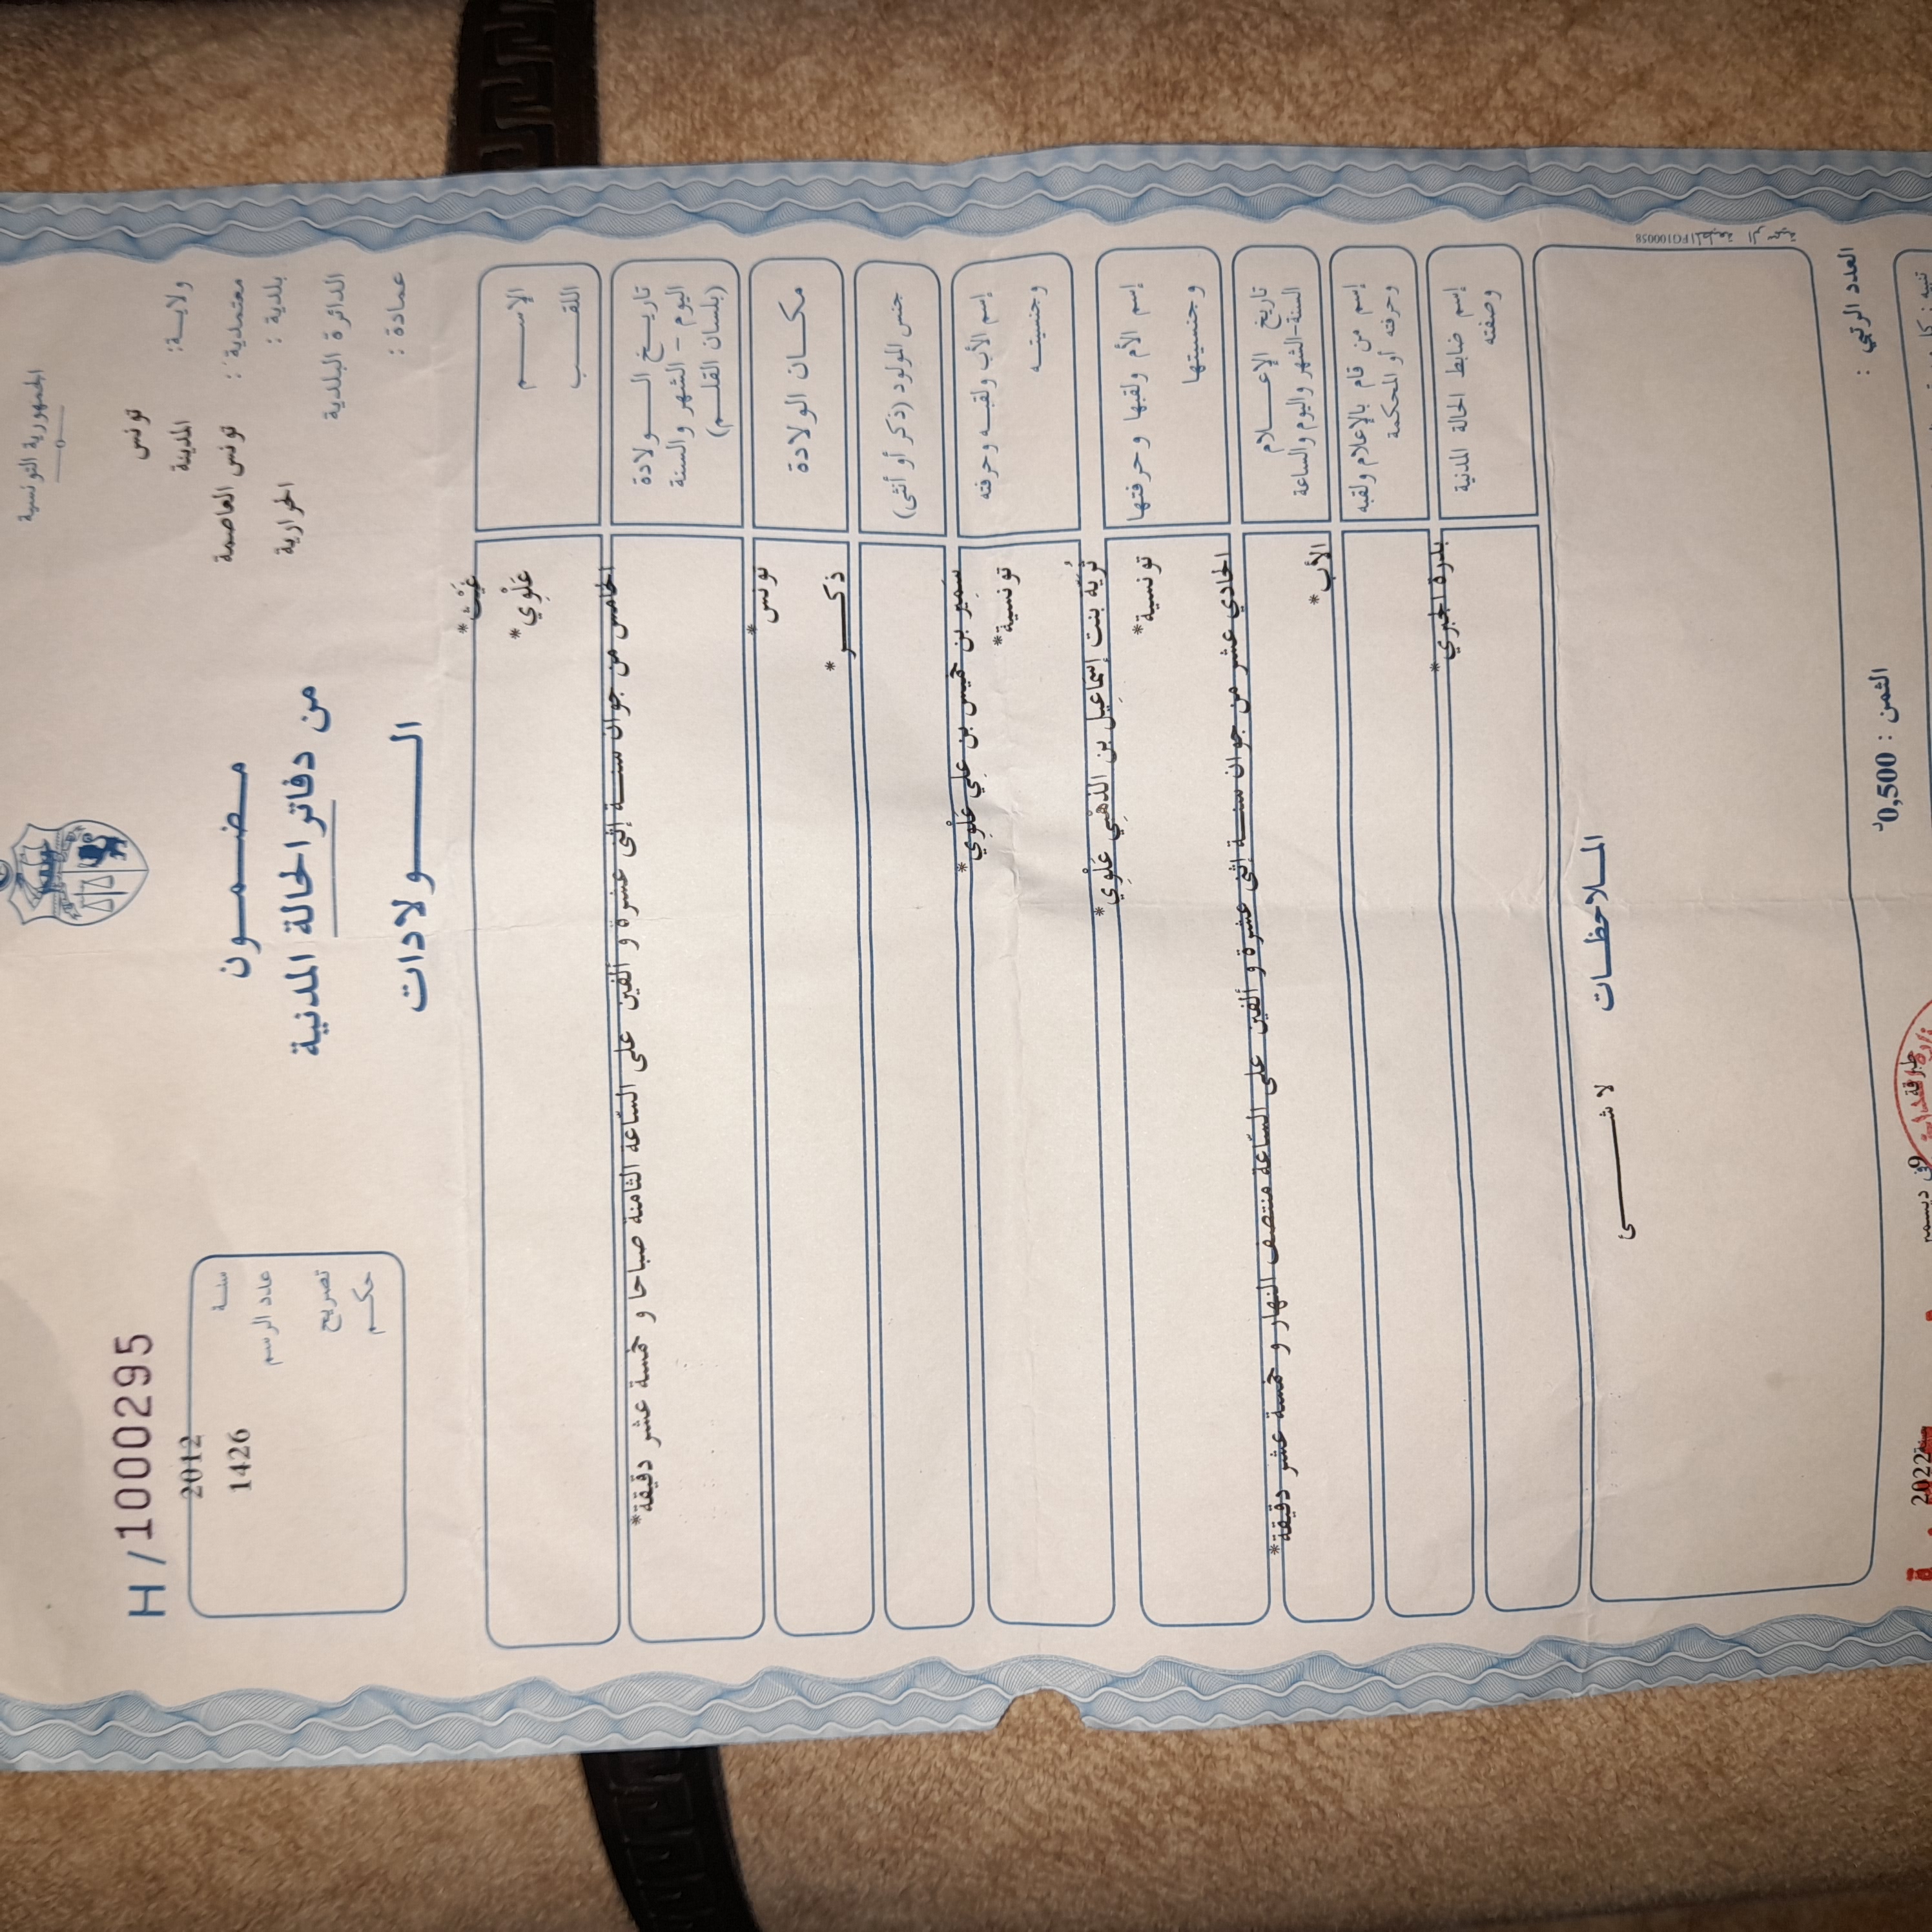 الجمهورية التونسية
H / 1000295
تونس
ولاية:
المدينة
معتمدية:
تونس العاصمة
بلدية:
الحرايرية
الدائرة البلدية
عمادة:
مضمون
من دفاتر الحالة المدنية
الولادات
سنة 2012
عدد الرسم 1426
تصريح
حكم
غيث*
الإسم
علوي*
اللقب
الخامس من جوان سنة إثنى عشرة و ألفين على الساعة الثامنة صباحا و خمسة عشر دقيقة*
تاريخ الولادة
اليوم - الشهر والسنة
(بلسان القلم)
تونس*
مكان الولادة
ذكر*
جنس المولود (ذكر أو أنثى)
سمير بن خميس بن علي علوي*
إسم الأب ولقبه وحرفته
تونسية*
وجنسيته
ثرية بنت إسماعيل بن الذهبي علوي*
إسم الأم ولقبها وحرفتها
تونسية*
وجنسيتها
الحادي عشر من جوان سنة إثنى عشرة و ألفين على الساعة منتصف النهار و خمسة عشر دقيقة*
تاريخ الإعلام
السنة-الشهر واليوم والساعة
الأب*
إسم من قام بالإعلام ولقبه
وحرفته أو المحكمة
إسم ضابط الحالة المدنية
وصفته
الملاحظات
لا شئ
المطبعة الرسمية FG100058
العدد الرتبي :
الثمن : 0,500د
2022